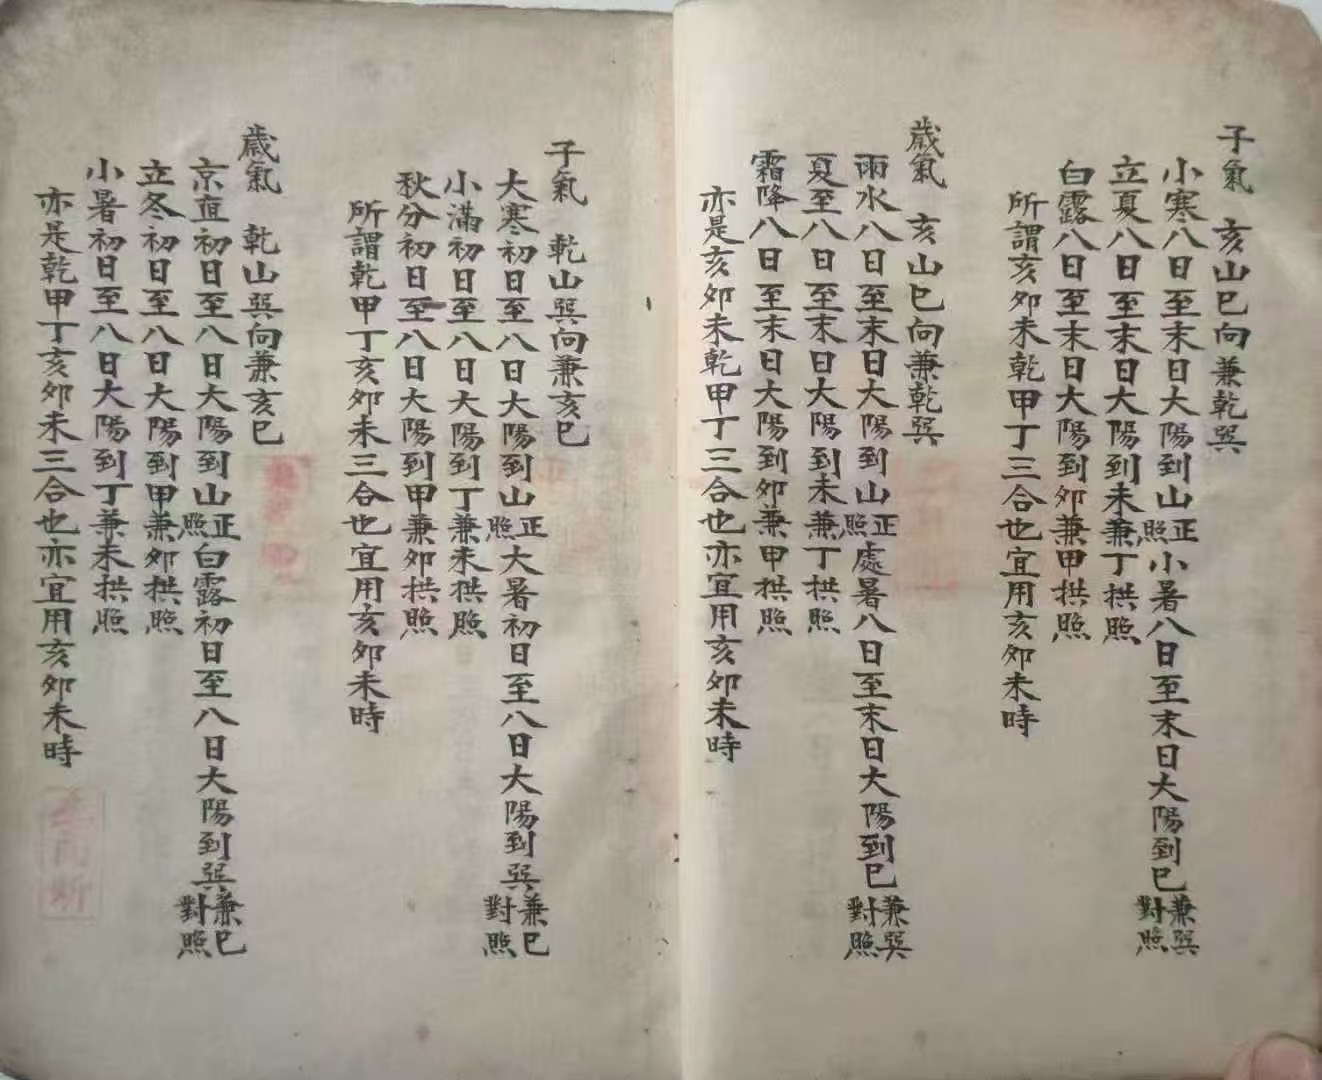 子氣　亥山巳向兼乾巽
小寒八日至末日大陽到山正照小暑八日至末日大陽到巳兼巽對照
立夏八日至末日大陽到未兼丁拱照
白露八日至末日大陽到卯兼甲拱照
所謂亥卯未乾甲丁三合也宜用亥卯未時
歲氣　亥山巳向兼乾巽
雨水八日至末日大陽到山正照處暑八日至末日大陽到巳兼巽對照
夏至八日至末日大陽到未兼丁拱照
霜降八日至末日大陽到卯兼甲拱照
亦是亥卯未乾甲丁三合也亦宜用亥卯未時
子氣　乾山巽向兼亥巳
大寒初日至八日大陽到山正照大暑初日至八日大陽到巽兼巳對照
小滿初日至八日大陽到丁兼未拱照
秋分初日至八日大陽到甲兼卯拱照
所謂乾甲丁亥卯未三合也宜用亥卯未時
歲氣　乾山巽向兼亥巳
京直初日至八日大陽到山正照白露初日至八日大陽到巽兼巳對照
立冬初日至八日大陽到甲兼卯拱照
小暑初日至八日大陽到丁兼未拱照
亦是乾甲丁亥卯未三合也亦宜用亥卯未時